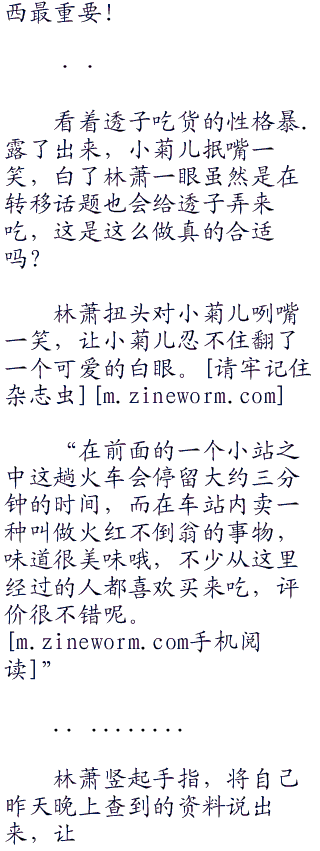 西最重要！
. .
看着透子吃货的性格暴.
露了出来，小菊儿抿嘴一
笑，白了林萧一眼虽然是在
转移话题也会给透子弄来
吃，这是这么做真的合适
吗？
林萧扭头对小菊儿咧嘴
一笑，让小菊儿忍不住翻了
一个可爱的白眼。[请牢记住
杂志虫][m.zineworm.com]
“在前面的一个小站之
中这趟火车会停留大约三分
钟的时间，而在车站内卖一
种叫做火红不倒翁的事物，
味道很美味哦，不少从这里
经过的人都喜欢买来吃，评
价很不错呢。
[m.zineworm.com手机阅
读]”
.. ........
林萧竖起手指，将自己
昨天晚上查到的资料说出
来，让